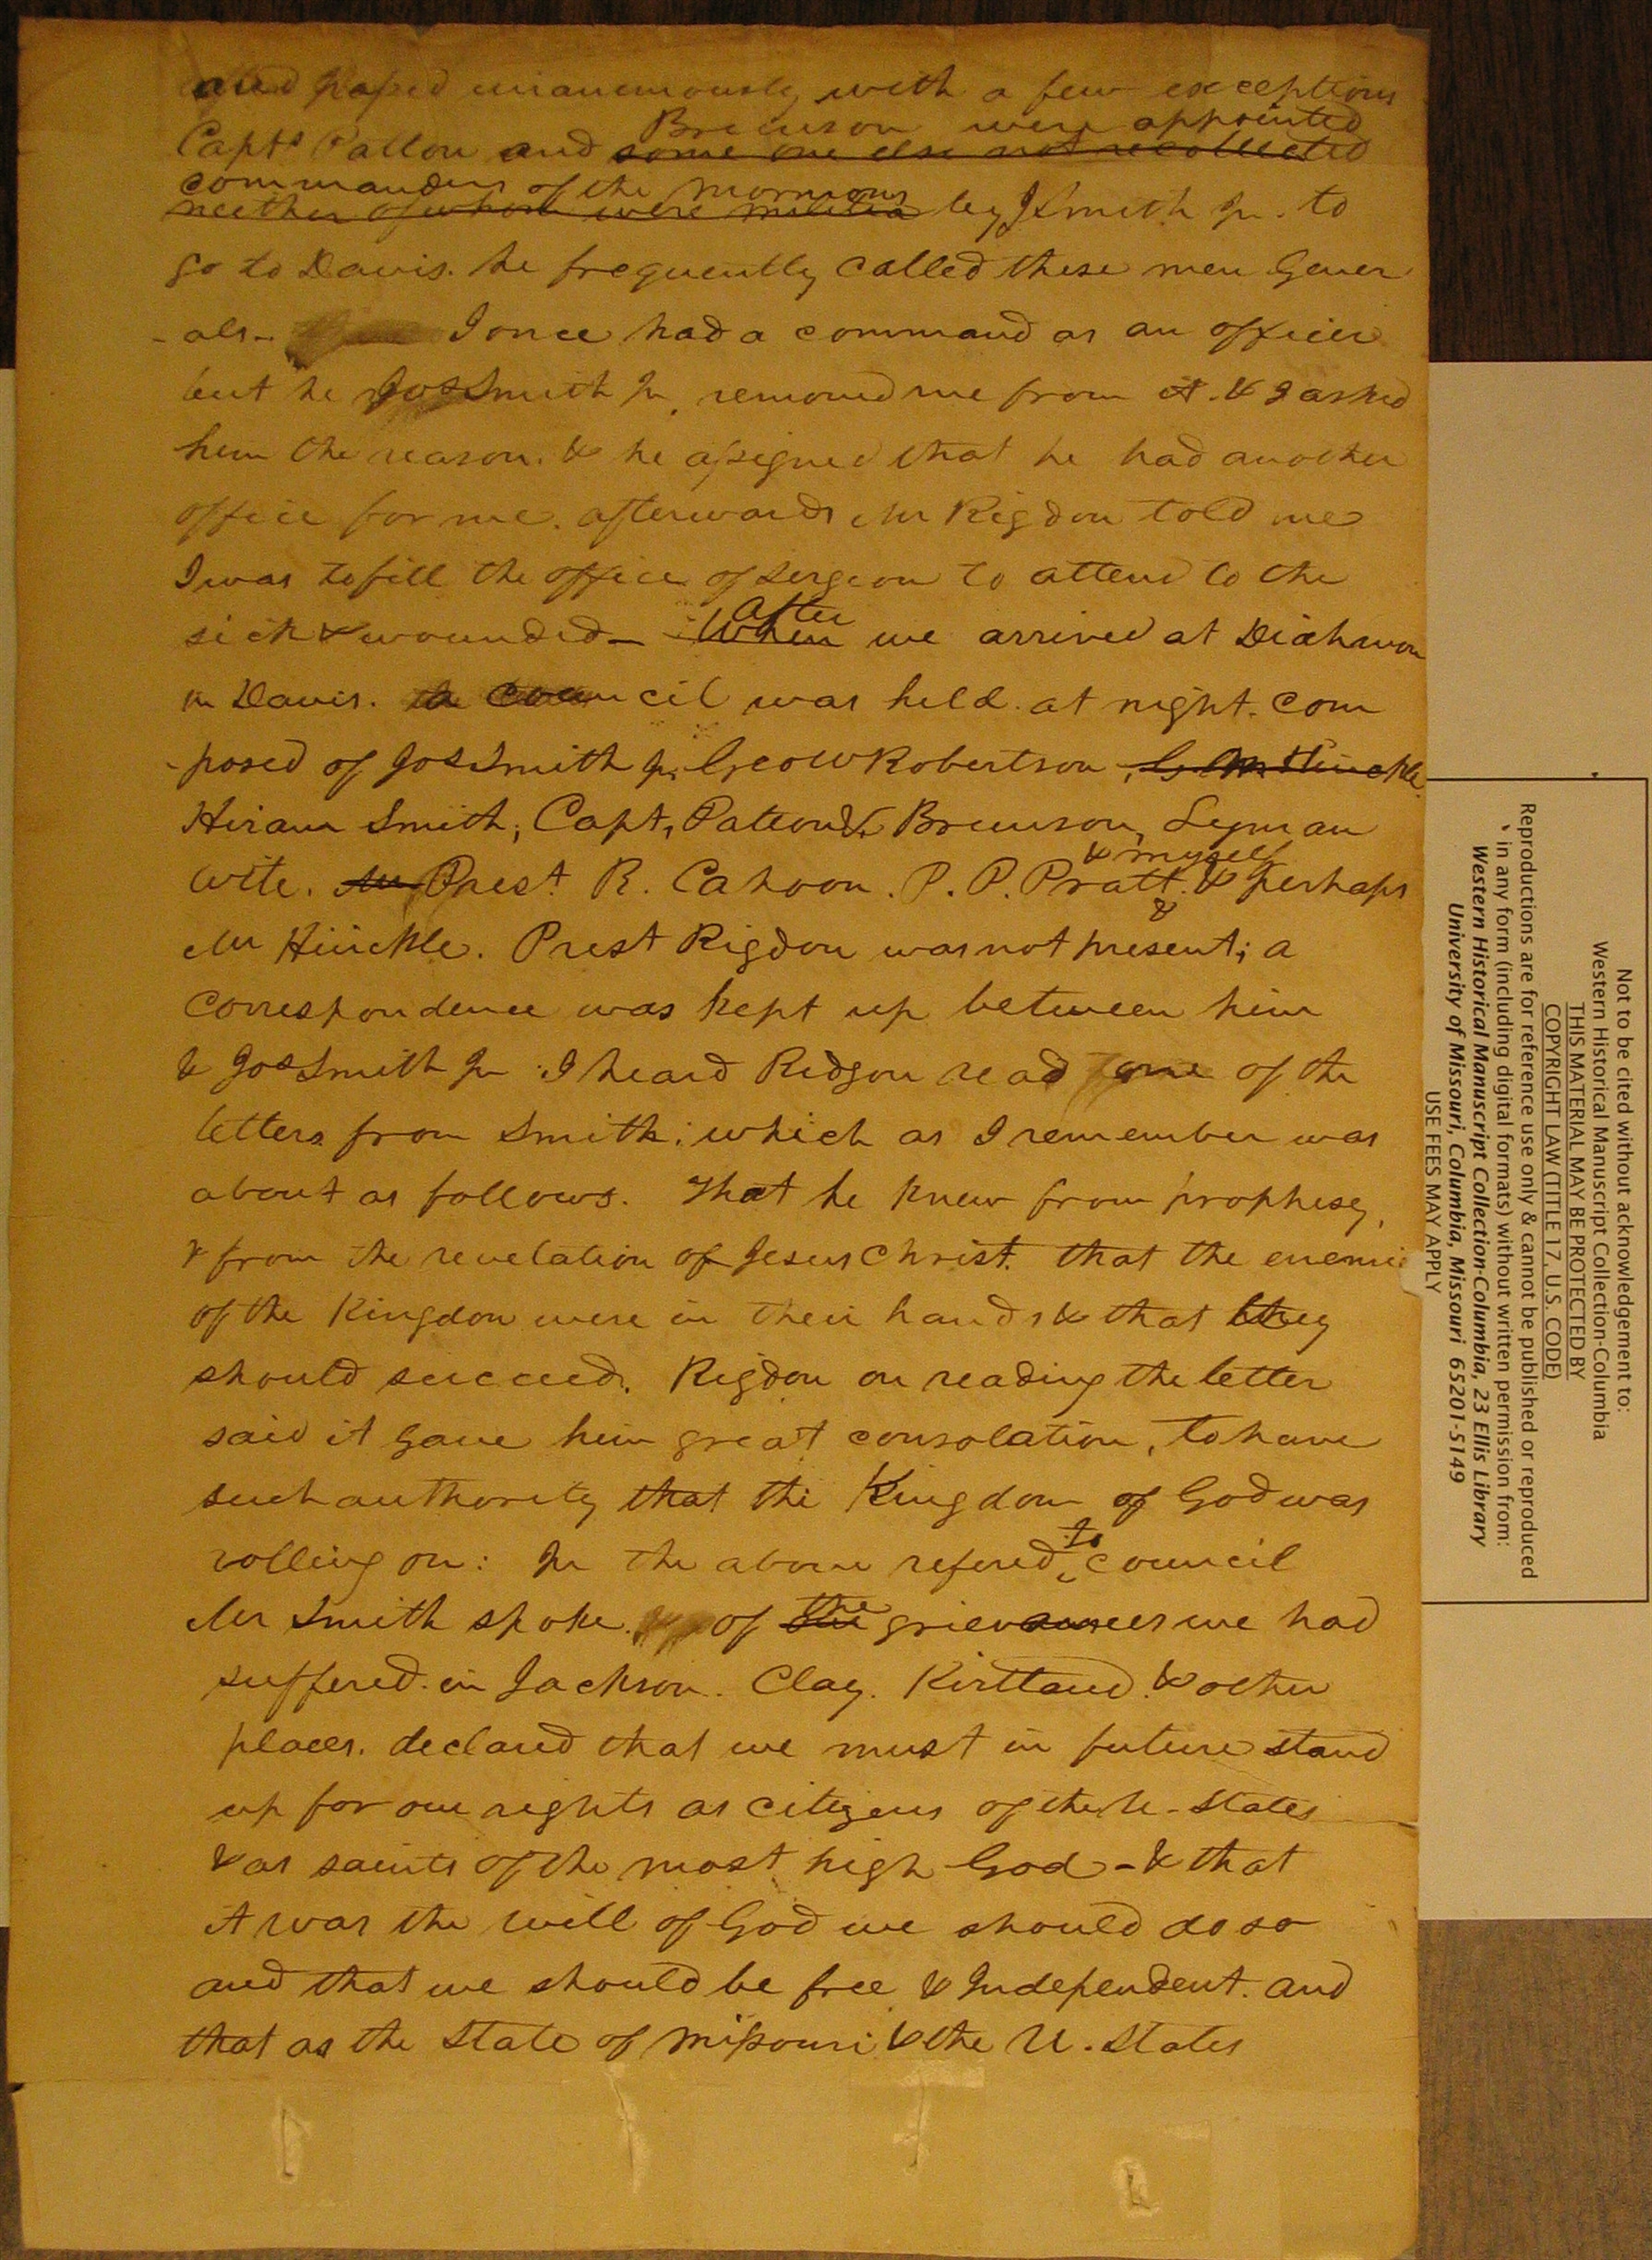 and passed unanemously with a few exceptions
Brunson were appointed
Capts Patton and some one else not recollected
commanders of the mormons
neither of whom were militia by J Smith Jr. to
go to Davis. he frequently called these men Gener
-als- I once had a command as an officer
but he Jos Smith Jr. removed me from it. & I asked
him the reason. & he assigned that he had another
office for me. afterwards Mr Rigdon told me
I was to fill the office of Sergeon to attend to the
after
sick & wounded - When we arrived at Diahmon
in Davis. a council was held at night. com
-posed of Jos Smith Jr. Geo W Robertson, G. M. Hinckle
Hiram Smith, Capt, Patton & Brunson, Lyman
& myself
Wite. Mr Prest R. Cahoon. P. P. Pratt. & perhaps
&
Mr Hinckle. Prest Rigdon was not present; a
correspondence was kept up between him
& Jos Smith Jr I heard Ridgon read one of the
letters from Smith; which as I remember was
about as follows. That he knew from prophesy,
& from the revelation of Jesus Christ. that the enemie
of the Kingdom were in their hands & that they
should succeed. Rigdon on reading the letter
said it gave him great consolation, to have
such authority that the Kingdom of God was
to
rolling on: In the above refered council
the
Mr Smith spoke of the grievances we had
suffered in Jackson. Clay. Kirtland & other
places. declared that we must in future stand
up for our rights as citizens of the U-States
& as saints of the most high God - & that
it was the will of God we should do so
and that we should be free & Independent. and
that as the State of Missouri & the U. States
Not to be cited without acknowledgement to:
Western Historical Manuscript Collection-Columbia
THIS MATERIAL MAY BE PROTECTED BY
COPYRIGHT LAW (TITLE 17, U.S. CODE)
Reproductions are for reference use only & cannot be published or reproduced
in any form (including digital formats) without written permission from:
Western Historical Manuscript Collection-Columbia, 23 Ellis Library
University of Missouri, Columbia, Missouri 65201-5149
USE FEES MAY APPLY